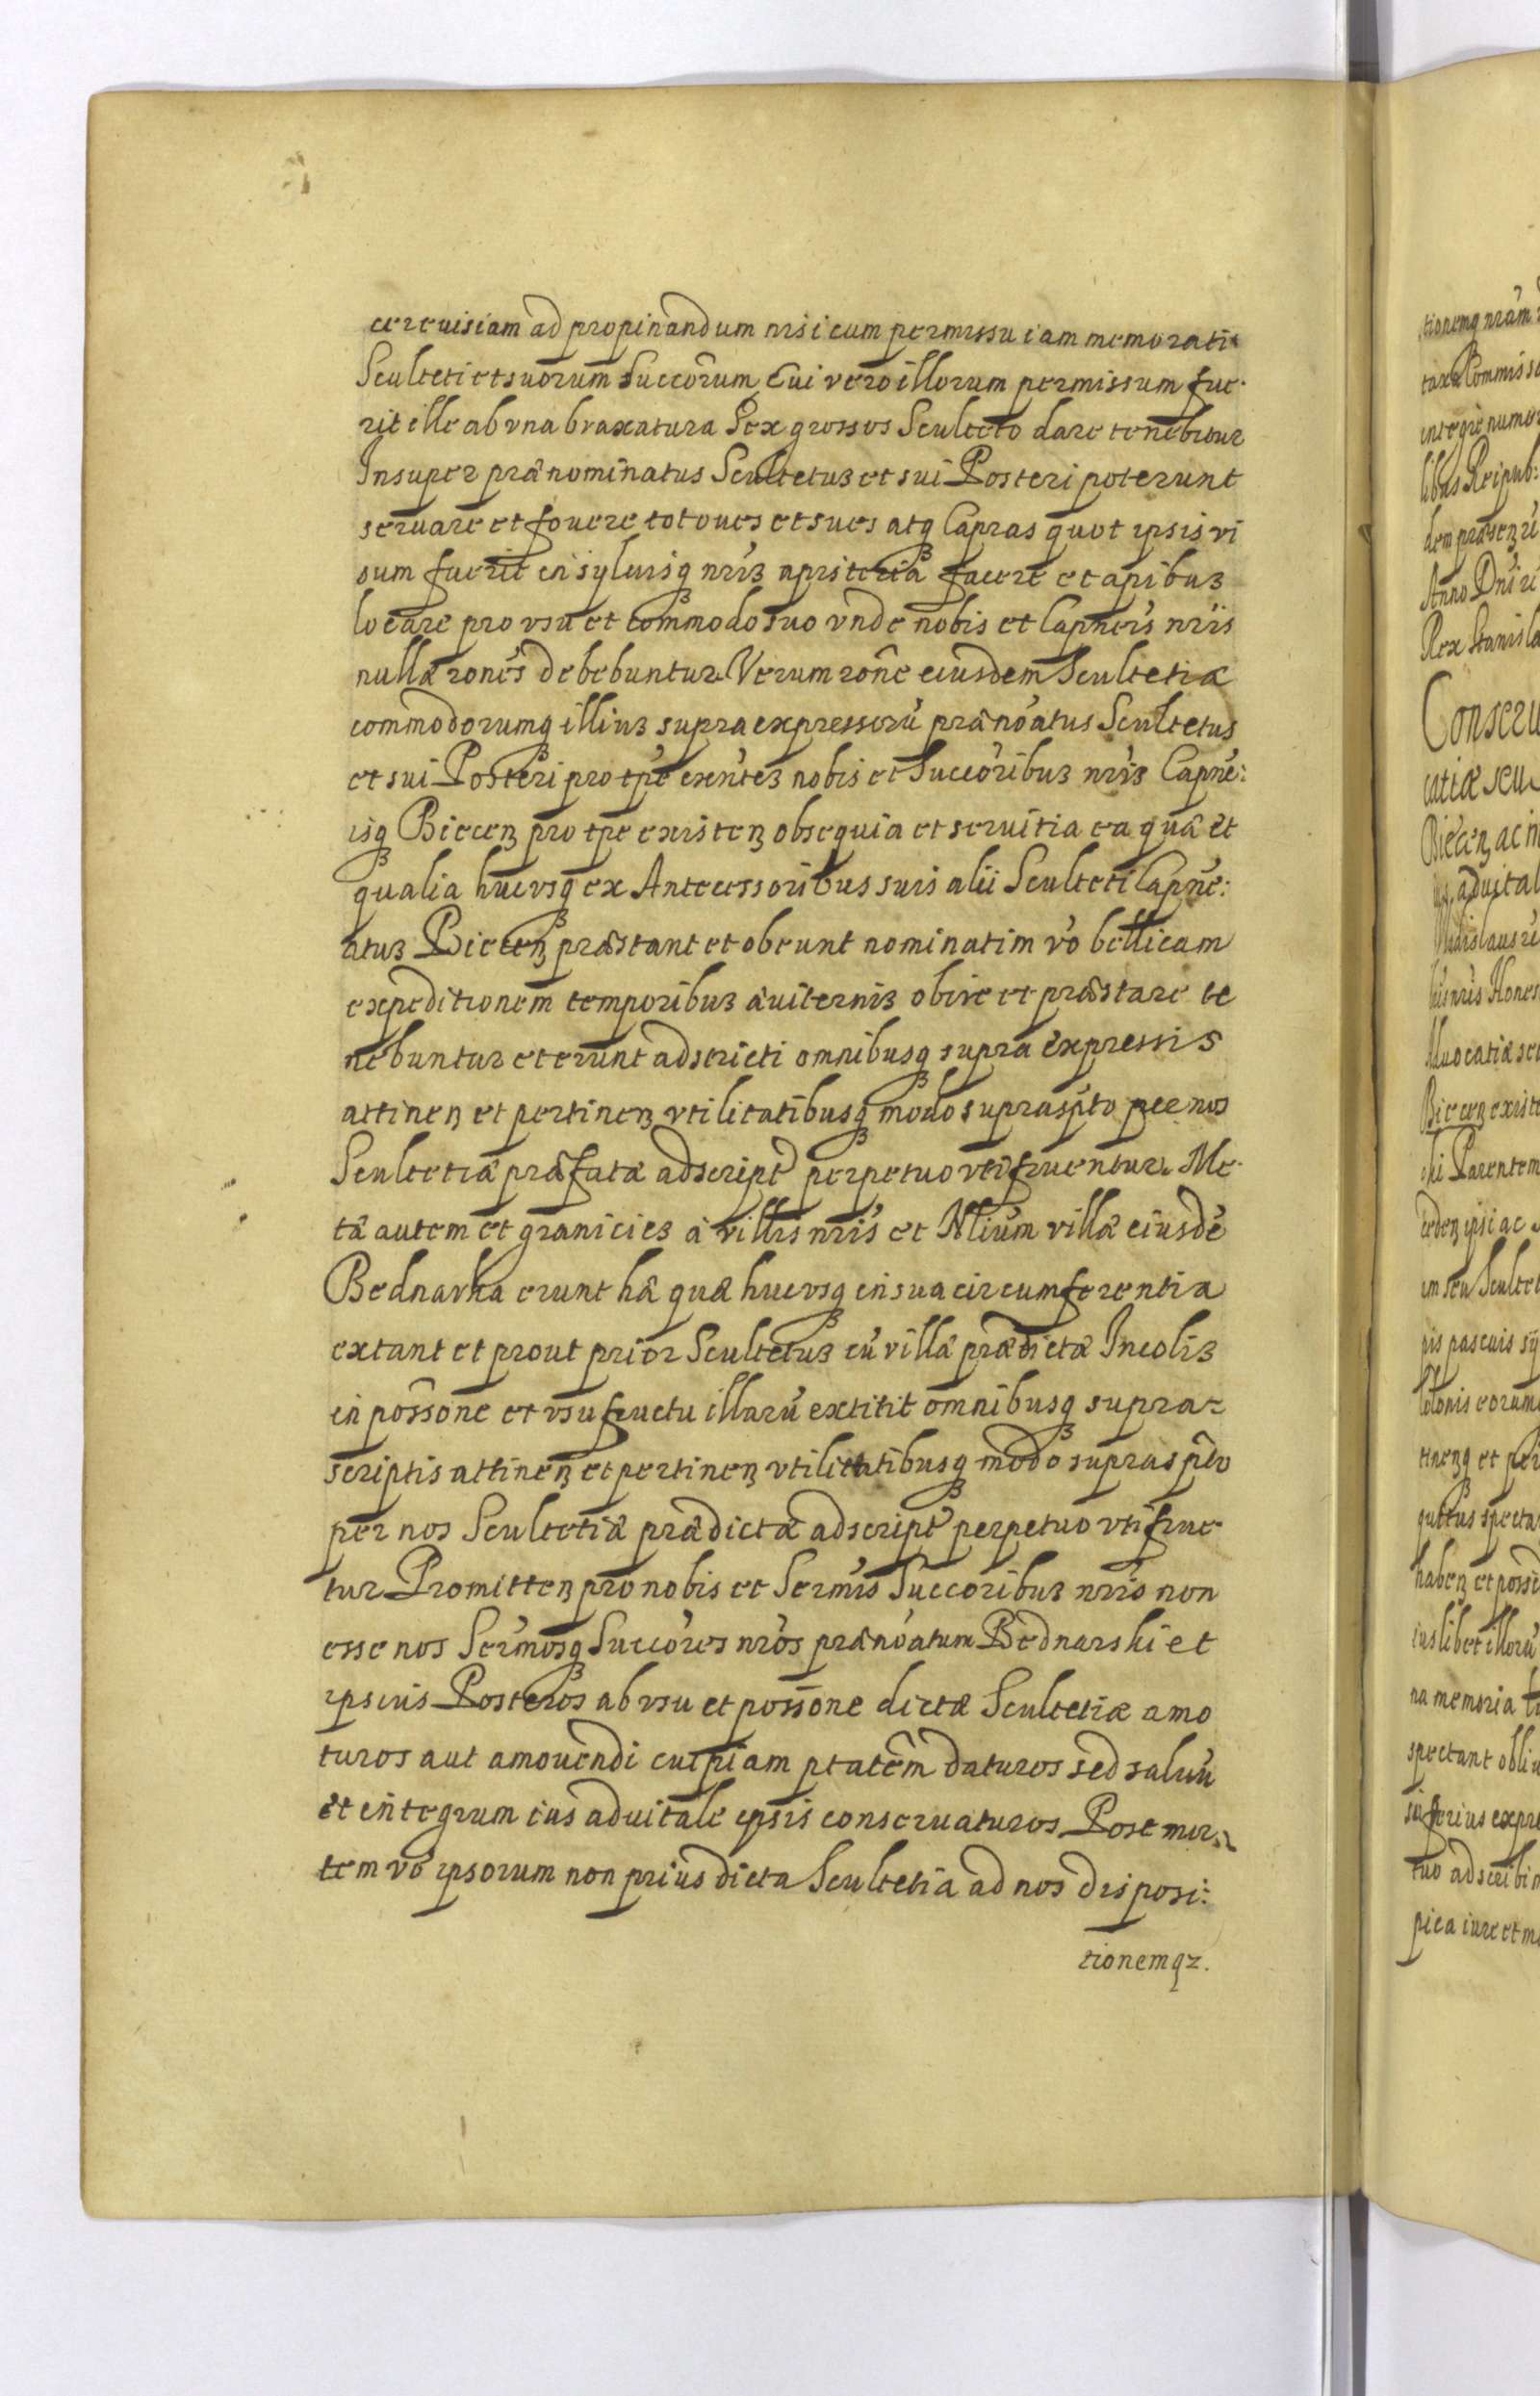 cereuisiam ad propinandum nisi cum permissu iam memorati
Sculteti et suorum Succorum Cui vero illorum permissum fue-
rit ille ab vna braxatura Sex grossos Sculteto dare tenebitur
Insuper prænominatus Scultetus et sui Posteri poterunt
seruare et fouere tot oues et sues atq3 Capras quot ipsis vi
sum fuerit in syluisq3 nris apisteria facere et apibus
locare pro vsu et commodo suo vnde nobis et Capneis nris
nullæ rones debebuntur. Verum rone eiusdem Scultetiæ
commodorumq3 illius supra expressorũ prænoatus Scultetus
et sui Posteri pro tpe exntes nobis et Succoribus nris Capne:
isq3 Biecen3 pro tpe existen3 obsequia et seruitia ea quæ et
qualia hucvsq3 ex Antecessoribus suis alii Sculteti Capne:
atus Biecen3 præstant et obeunt nominatim vo bellicam
expeditionem temporibus æuiternis obire et præstare te
nebuntur et erunt adstricti omnibusq3 supra expressis
attinen3 et pertinen3 vtilitatibusq3 modo suprasptо per nos
Scultetiæ præfatæ adscript perpetuo vti fruentur. Me-
tæ autem et granicies à villis nris et Alium villæ eiusdẽ
Bednarka erunt hæ quæ hucvsq3 in sua circumferentia
extant et prout prior Scultetus cũ villæ prædictæ Incolis
in possone et vsufructu illarũ extitit omnibusq3 supra-
scriptis attinen3 et pertinen3 vtilitatibusq3 modo suprasptо
per nos Scultetiæ prædictæ adscript perpetuo vti frue-
tur Promitten3 pro nobis et Sermis Succoribus nris non
esse nos Sermosq3 Succores nros prænoatum Bednarski et
ipsius Posteros ab vsu et possone dictæ Scultetiæ amo
turos aut amouendi cuipiam ptatem daturos sed saluũ
et integrum ius aduitale ipsis conseruaturos Post mor-
tem vo ipsorum non prius dicta Scultetia ad nos disposi:
tionemq3.